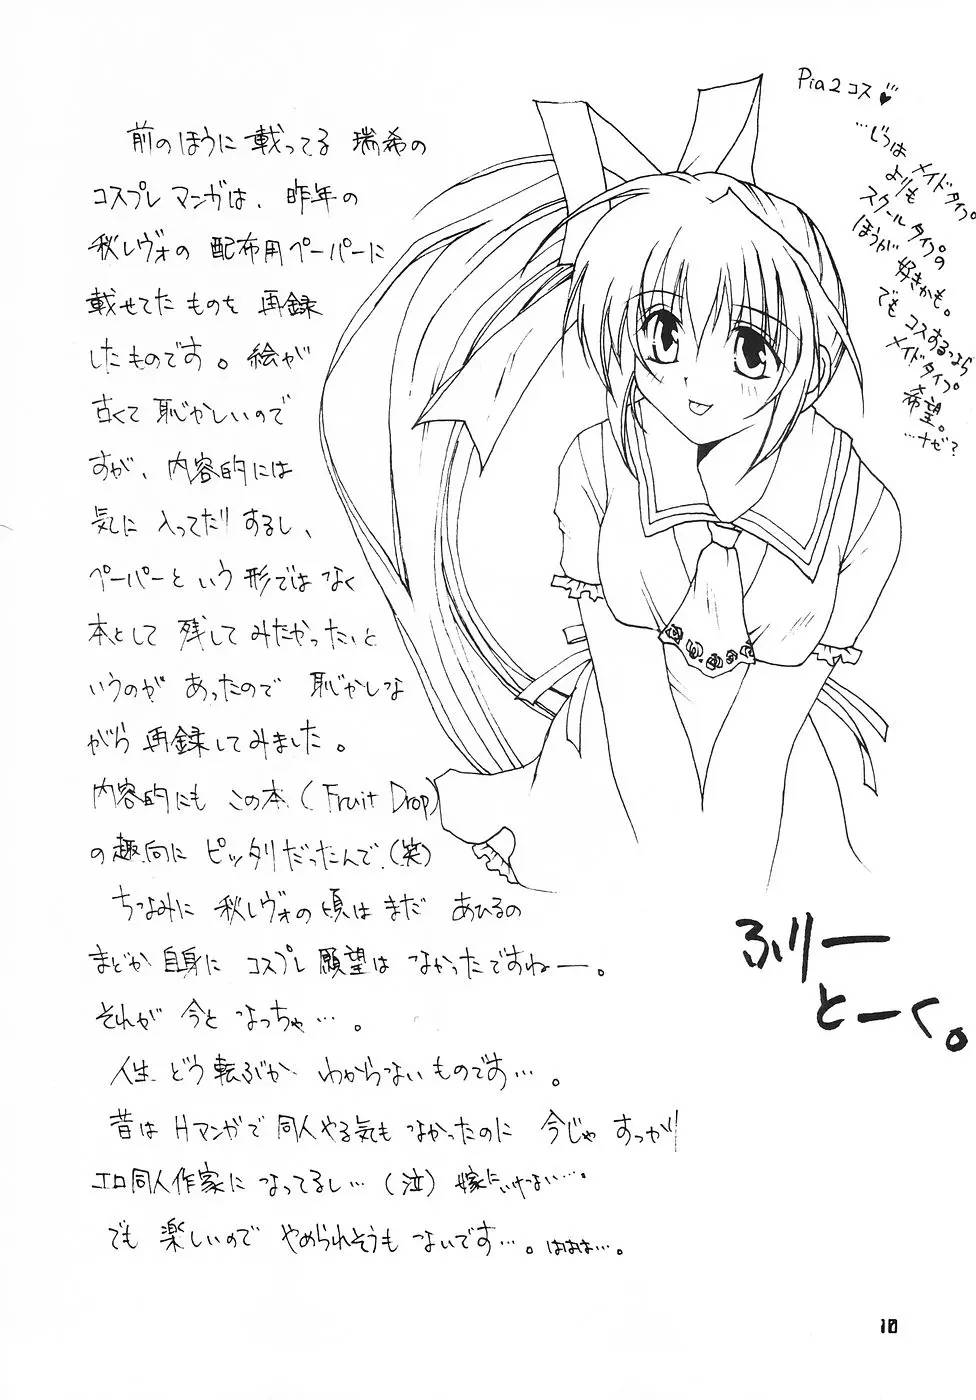 前のほうに載ってる瑞希の
コスプレマンガは、昨年の
秋レヴォの配布用ペーパーに
載せてたものを再録
したものです。絵が
古くて恥かしいので
すが、内容的には
気に入ってたりするし、
ペーパーという形ではなく
本として残してみたかったいと
いうのがあったので恥かしな
がら再録してみました。
内容的にもこの本(Fruit Drop)
の趣向にピッタリだったんで(笑)
ちなみに秋レヴォの頃はまだあひるの
まどか自身にコスプレ願望はなかったですねー。
それが今となっちゃ…。
人生どう転ぶかわからないものです…。
昔はHマンガで同人やる気もなかったのに今じゃすっかり
エロ同人作家になってるし…(泣)嫁にいけない…。
でも楽しいのでやめられそうもないです…。ははは…。
Pia2コス♥
…じつは
メイドタイプ
よりも
スクールタイプの
ほうが好きかも。
でもコスするなら
メイドタイプ
希望。
…ナゼ?
ふりー
とーく。
10